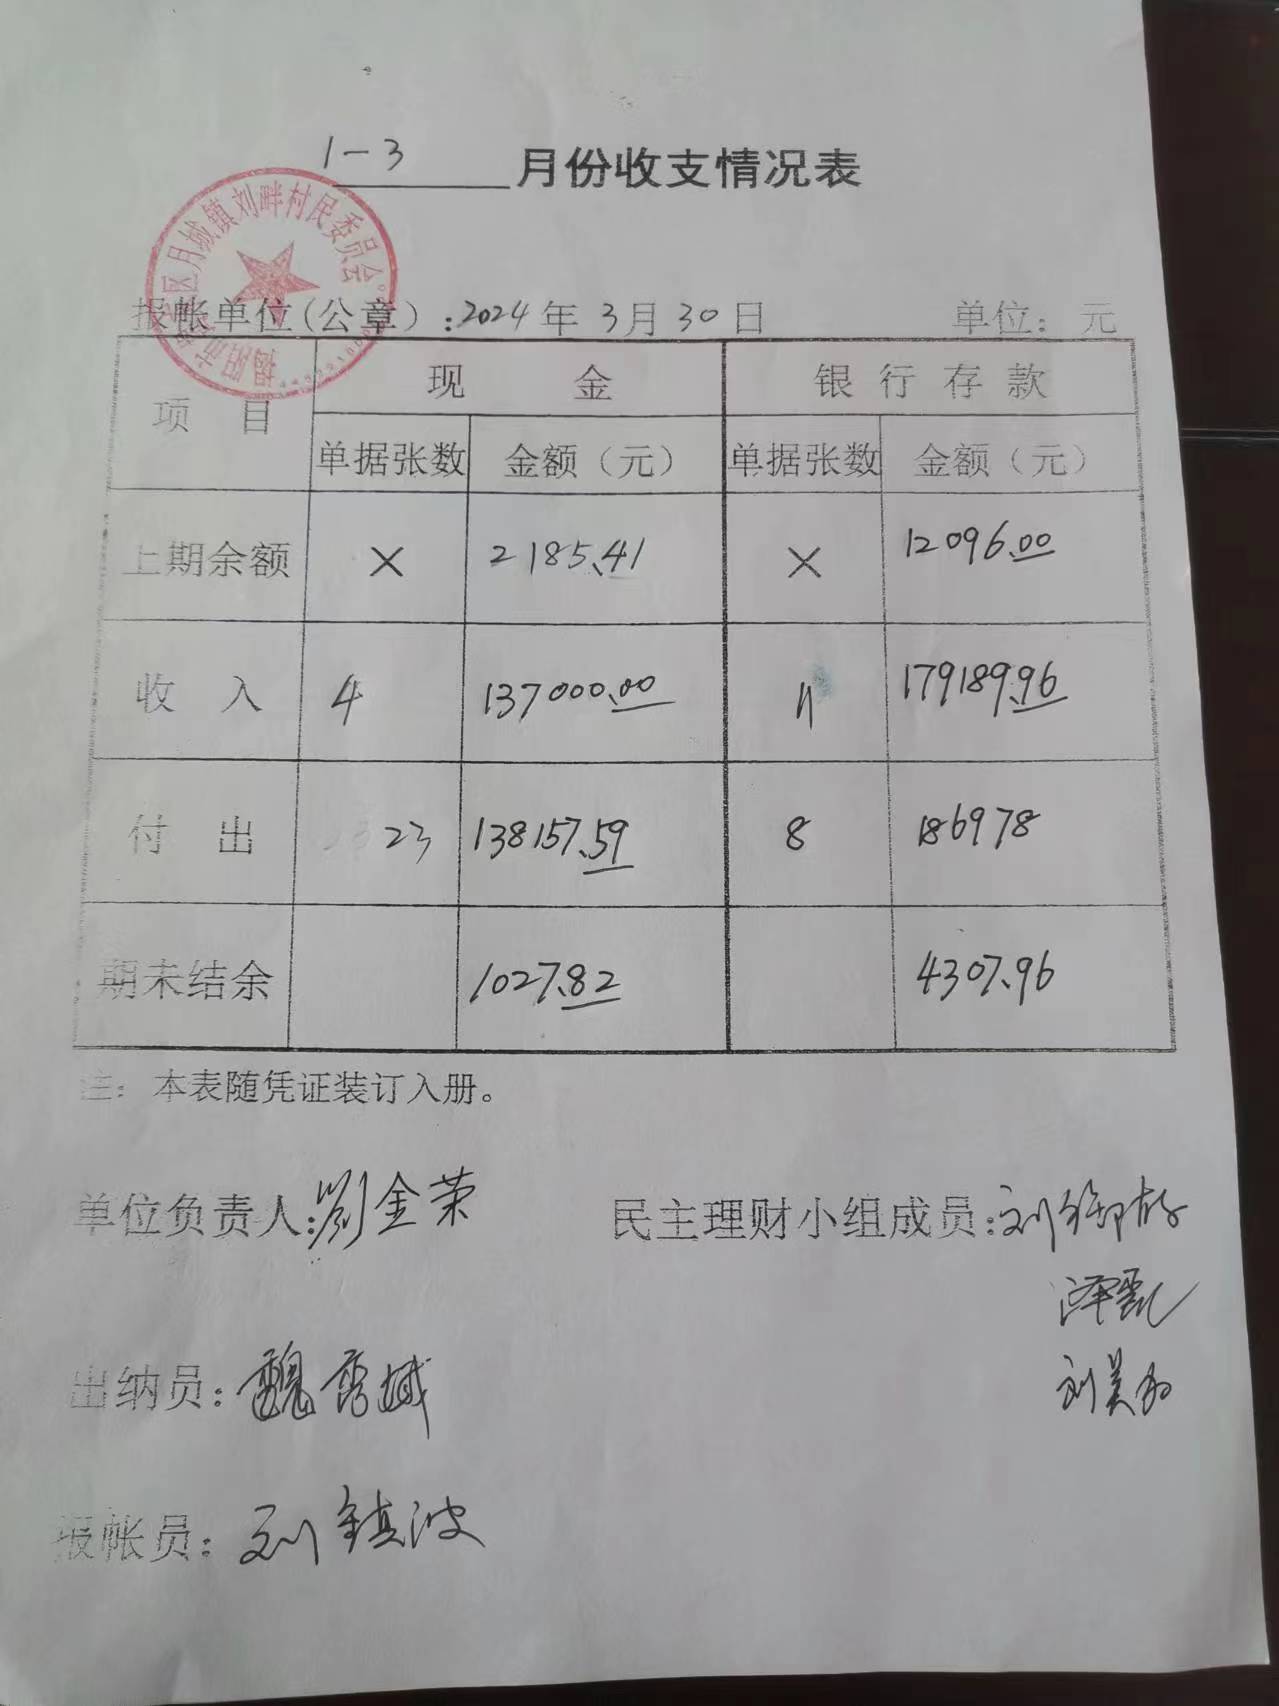 1-3 月份收支情况表
月城镇刘畔村民委员会
报帐单位(公章):2024年3月30日 单位:元
项目 现金 银行存款
单据张数 金额(元) 单据张数 金额(元)
上期余额 × 2185.41 × 12096.00
收入 4 137000.00 11 179189.96
付出 23 138157.59 8 186978
期末结余 1027.82 4307.96
注:本表随凭证装订入册。
单位负责人:刘金荣 民主理财小组成员:刘
泽凯
刘美
出纳员:魏
报帐员:刘镇波